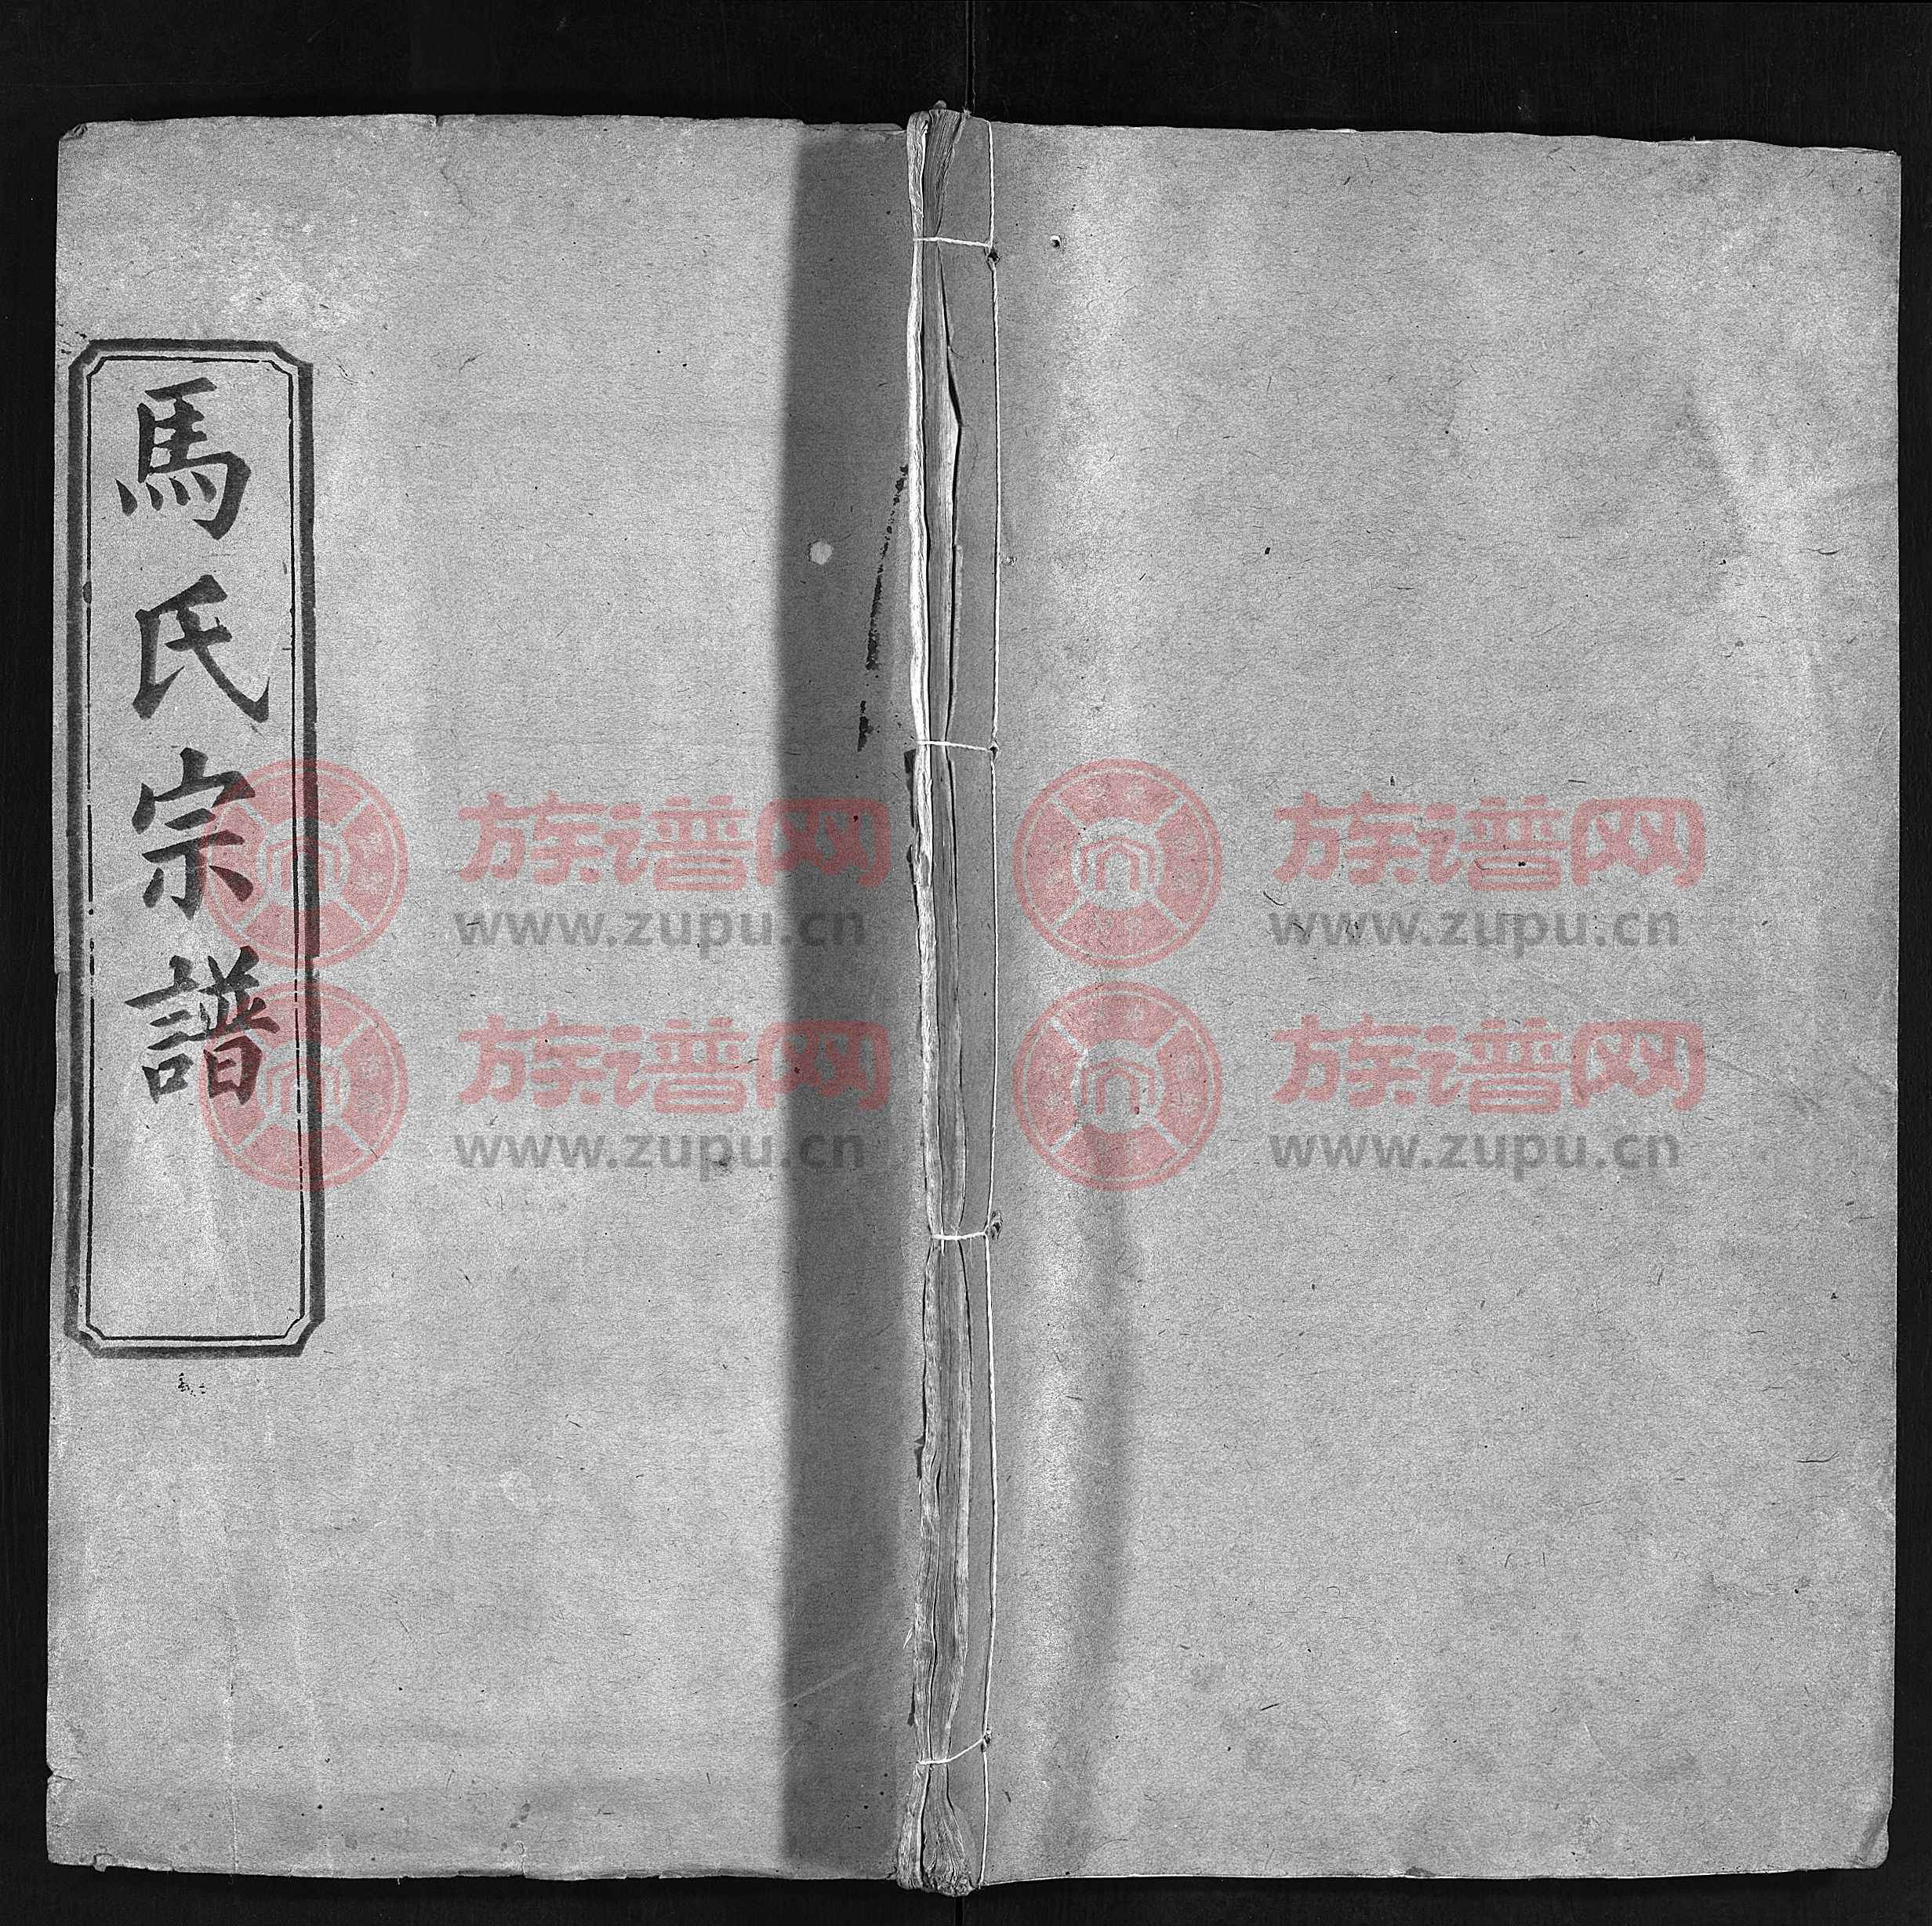 馬氏宗譜
族谱网 族谱网
www.zupu.cn www.zupu.cn
族谱网 族谱网
www.zupu.cn www.zupu.cn